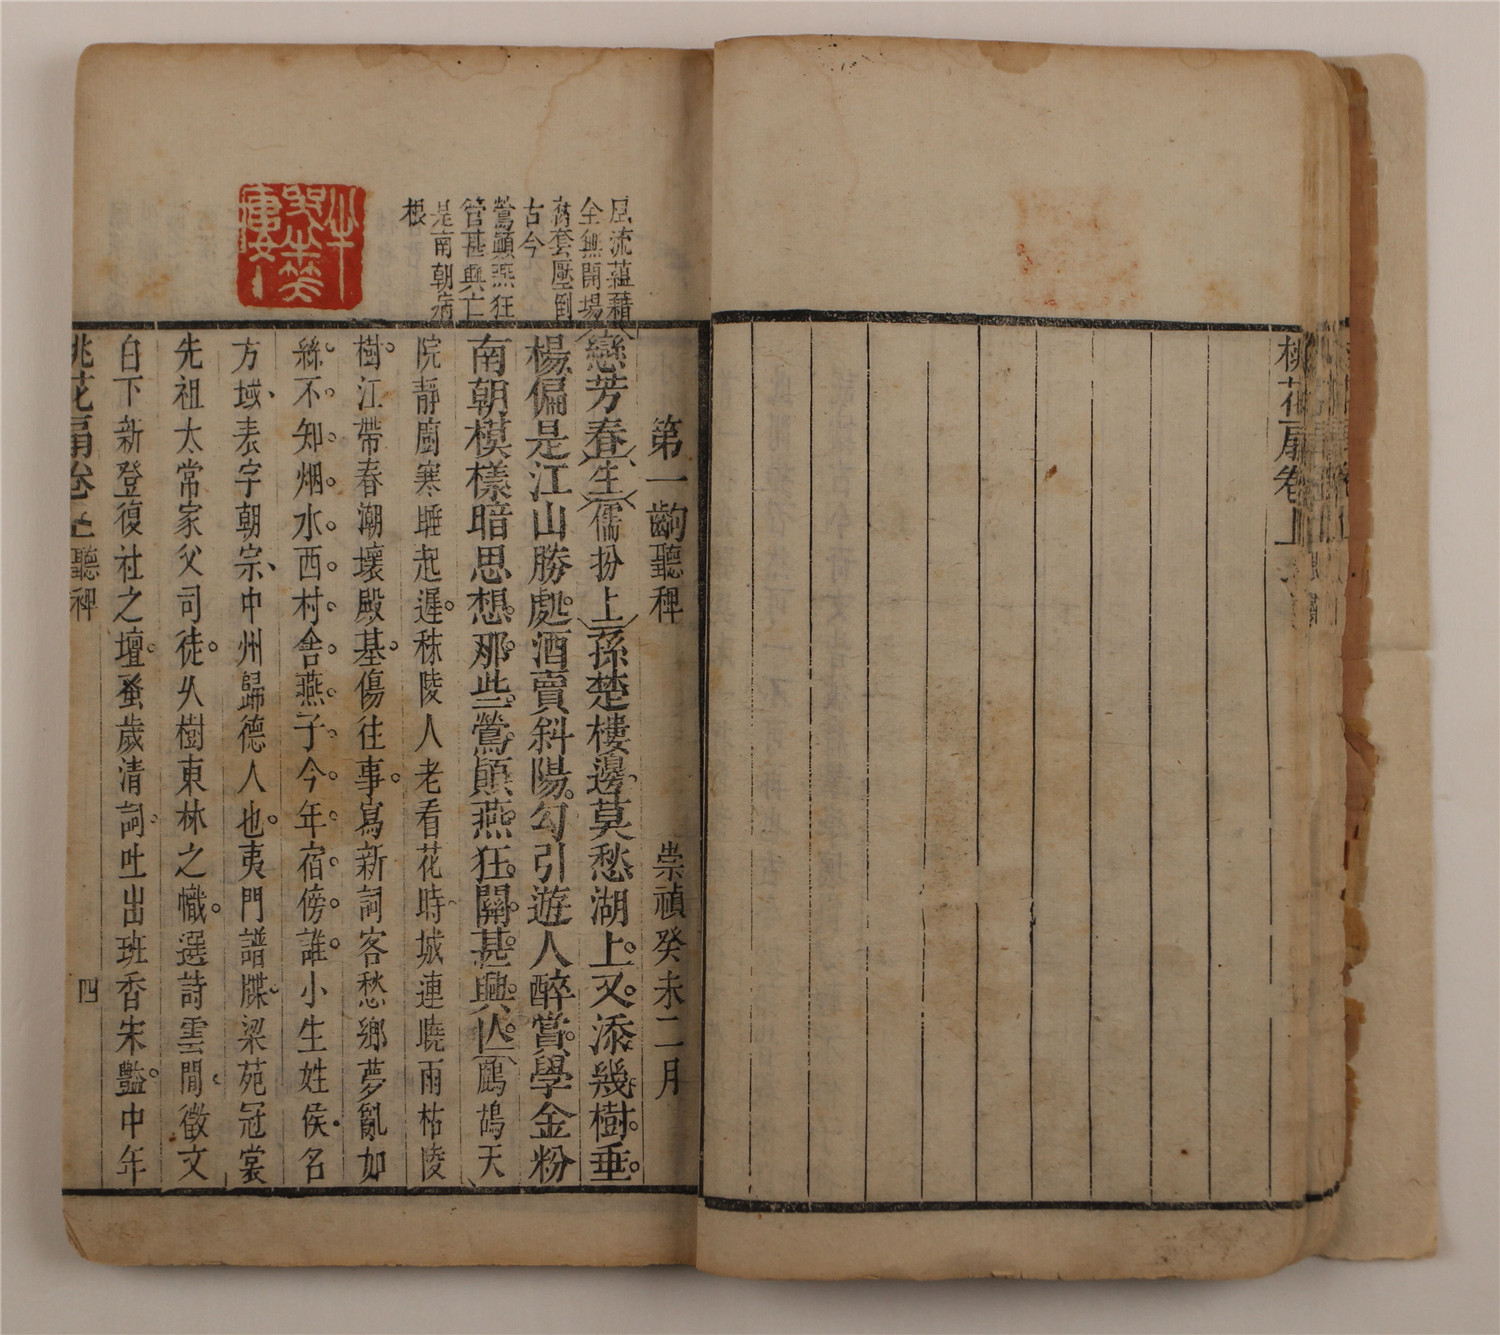 桃花扇卷上
第一齣聽稗 崇禎癸未二月
戀芳春生儒扮上孫楚樓邊莫愁湖上又添幾樹垂
楊偏是江山勝處酒賣斜陽勾引遊人醉賞學金粉
南朝模樣暗思想那些鶯顛燕狂關甚興亾鷓鴣天
院靜廚寒睡起遲秣陵人老看花時城連曉雨枯陵
樹江帶春潮壞殿基傷往事寫新詞客愁鄉夢亂如
絲不知烟水西村舍燕子今年宿傍誰小生姓侯名
方域表字朝宗中州歸德人也夷門譜牒梁苑冠裳
先祖太常家父司徒乆樹東林之幟選詩雲間徵文
白下新登復社之壇蚤歲清詞吐出班香宋豔中年
桃花扇卷上 聽稗 四
風流蘊藉
全無開場
腐套壓倒
古今
鶯顛燕狂
管甚興亡
是南朝病
根